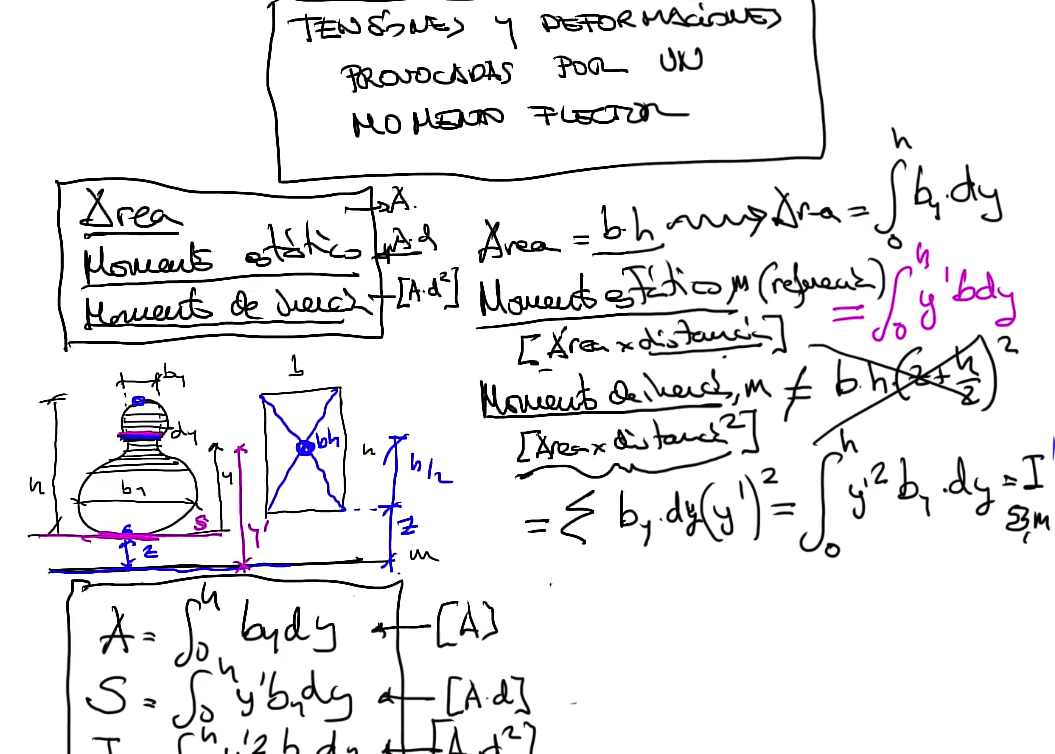 TENSIONES Y DEFORMACIONES
PROVOCADAS POR UN
MOMENTO FLECTOR
Área → A.
Momento estático ← A·d
Momento de inercia — [A·d²]
Área = b·h ⟿ Área = ∫₀ʰ b_y·dy
Momento estático, m (referencia) = ∫₀ʰ y' b dy
[Área x distancia]
Momento de inercia, m ≠ b·h(z+h/2)²
[Área x distancia²]
= Σ b_y·dy(y')² = ∫₀ʰ y'² b_y·dy = I
b_y
dy
h
b_y
y
S
z
y'
b
bh
h
h/2
z
m
A = ∫₀ʰ b_y dy ← [A]
S = ∫₀ʰ y' b_y dy ← [A·d]
I ∫ʰ y'² b_y dy ← [A·d²]